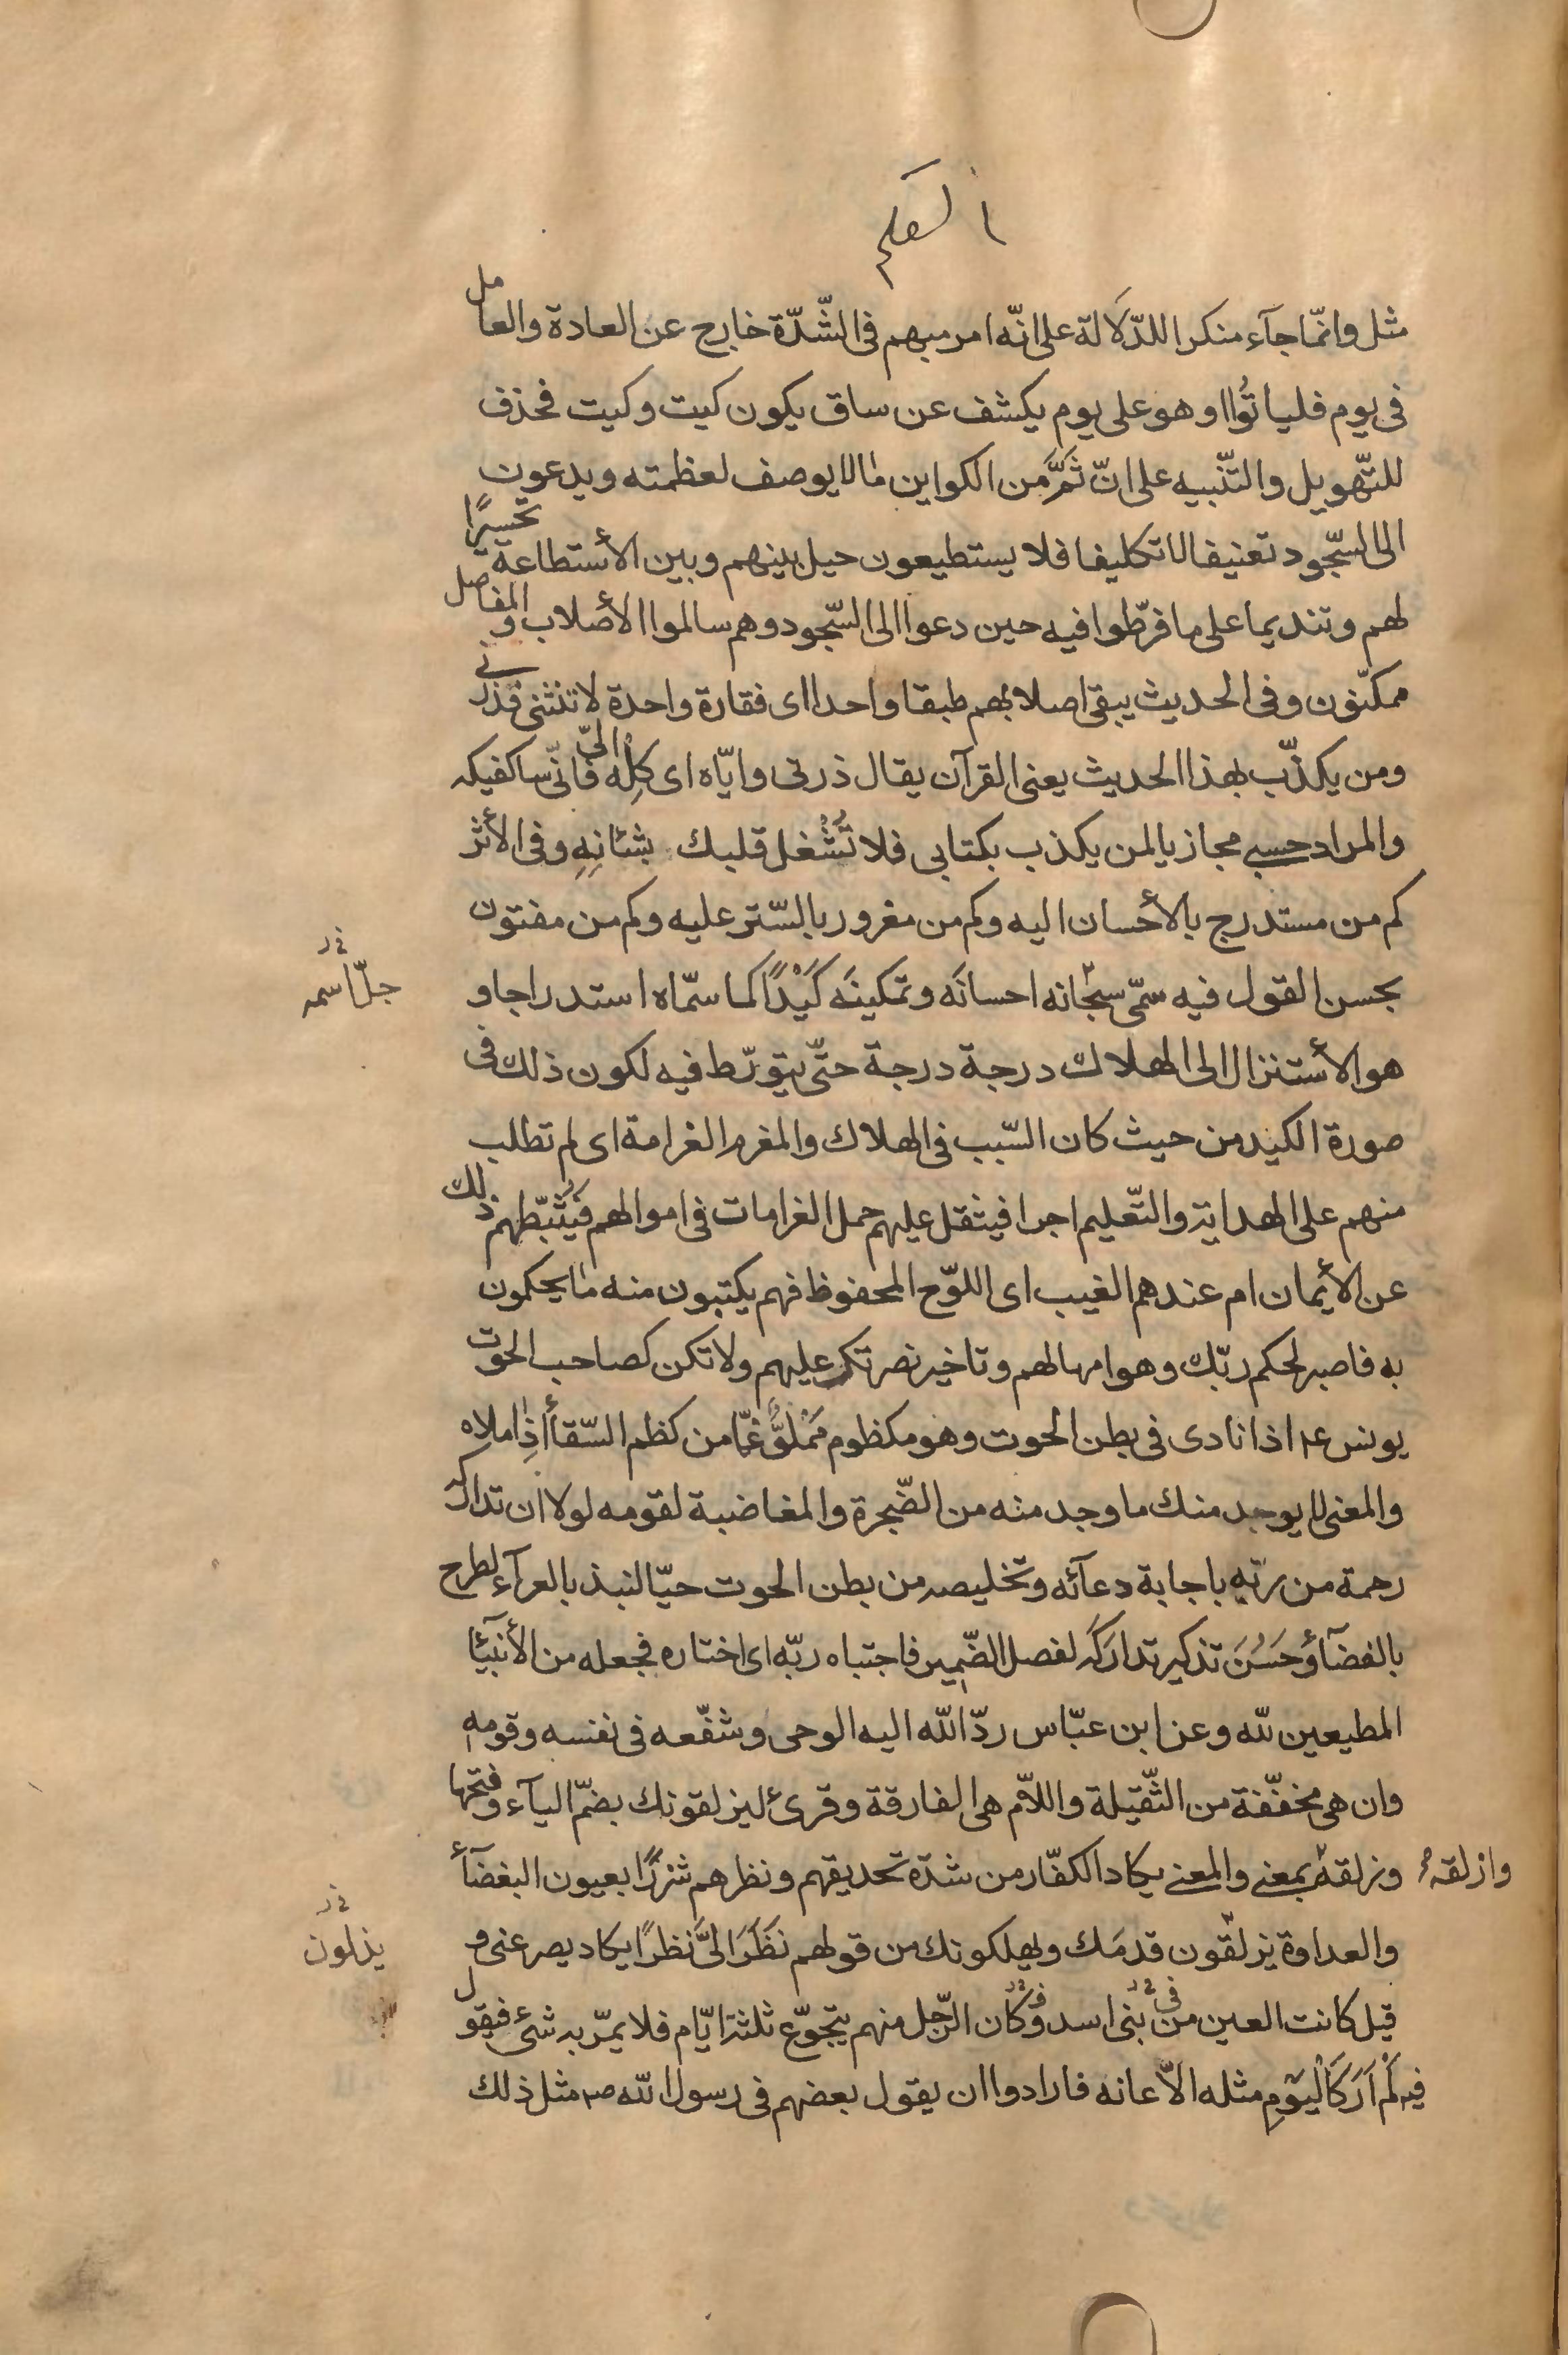 القلم
مثل وانّما جآء منكرا للدّلالة على انّه امر مبهم فى الشّدّة خارج عن العادة والعامل
فى يوم فلياتُوا او هو على يوم يكشف عن ساق يكون كيت وكيت فحذف
للتّهويل والتّنبيه على انّ ثَمَّ من الكواين ما لا يوصف لعظمته ويدعون
الى السّجود تعنيفا لا تكليفا فلا يستطيعون حيل بينهم وبين الأستطاعة تحسيرًا
لهم وتنديما على ما فرّطوا فيه حين دعوا الى السّجود وهم سالموا الأصلاب والمفاصل
ممكّنون وفى الحديث يبقى اصلابهم طبقا واحدا اى فقارة واحدة لا تنثنى فذرنى
ومن يكذّب بهذا الحديث يعنى القرآن يقال ذرنى وايّاه اى كِلْه الىّ فانّى ساكفيكه
والمراد حسبى مجازيا لمن يكذب بكتابى فلا تُشْغل قلبك بشانِهِ وفى الأثر
كم من مستدرج بالأحسان اليه وكم من مغرور بالسّتر عليه وكم من مفتون
بحسن القول فيه سمّى سبحانه احسانَه وتمكينَه كَيْدًا كما سمّاه استدراجا و
جلّ اسمه
هو الأستنزال الى الهلاك درجة درجة حتّى يتورّط فيه لكون ذلك فى
صورة الكيد من حيث كان السّبب فى الهلاك والمغرم الغرامة اى لم تطلب
منهم على الهداية والتّعليم اجرا فيثقل عليهم حمل الغرامات فى اموالهم فيُثَبّطهم ذلك
عن الأيمان ام عندهم الغيب اى اللوّح المحفوظ فهم يكتبون منه ما يحكمون
به فاصبر لحكم ربّك وهو امهالهم وتاخير نصرتك عليهم ولا تكن كصاحب الحوت
يونس ع اذ نادى فى بطن الحوت وهو مكظوم مَمْلوٌّ غمّا من كظم السّقأ اذا ملاه
والمعنى لا يوجد منك ما وجد منه من الضّجرة والمغاضبة لقومه لولا ان تداركه
رحمة من ربّه باجابة دعآئه وتخليصه من بطن الحوت حيّا لنبذ بالعرآء لطرح
بالفضآء وحَسُنَ تذكير تدارَكَه لفصل الضّمير فاجتباه ربّه اى اختاره فجعله من الأنبيٓا
المطيعين لله وعن ابن عبّاس ردّ الله اليه الوحى وشفّعه فى نفسه وقومه
وان هى مخفّفة من الثّقيلة واللاّم هى الفارقة وقرئ ليزلقونك بضمّ اليآء وفتحها
وزلقه وازلقه بمعنى والمعنى يكاد الكفّار من شدّة تحديقهم ونظرهم شزرًا بعيون البغضآء
والعداوة يزلّقون قدمَك ويهلكونك من قولهم نَظَرَ الىَّ نظرًا يكاد يصرعنى و
يزلون
قيل كانت العين من فى بنى اسد وكان الرّجل منهم يتجوّع ثلثة ايّام فلا يمرّ به شئ فيقول
فيه لَمْ اَرَ كَالْيَوْمِ مثله الاّ عانه فارادوا ان يقول بعضهم فى رسول الله ص مثل ذلك